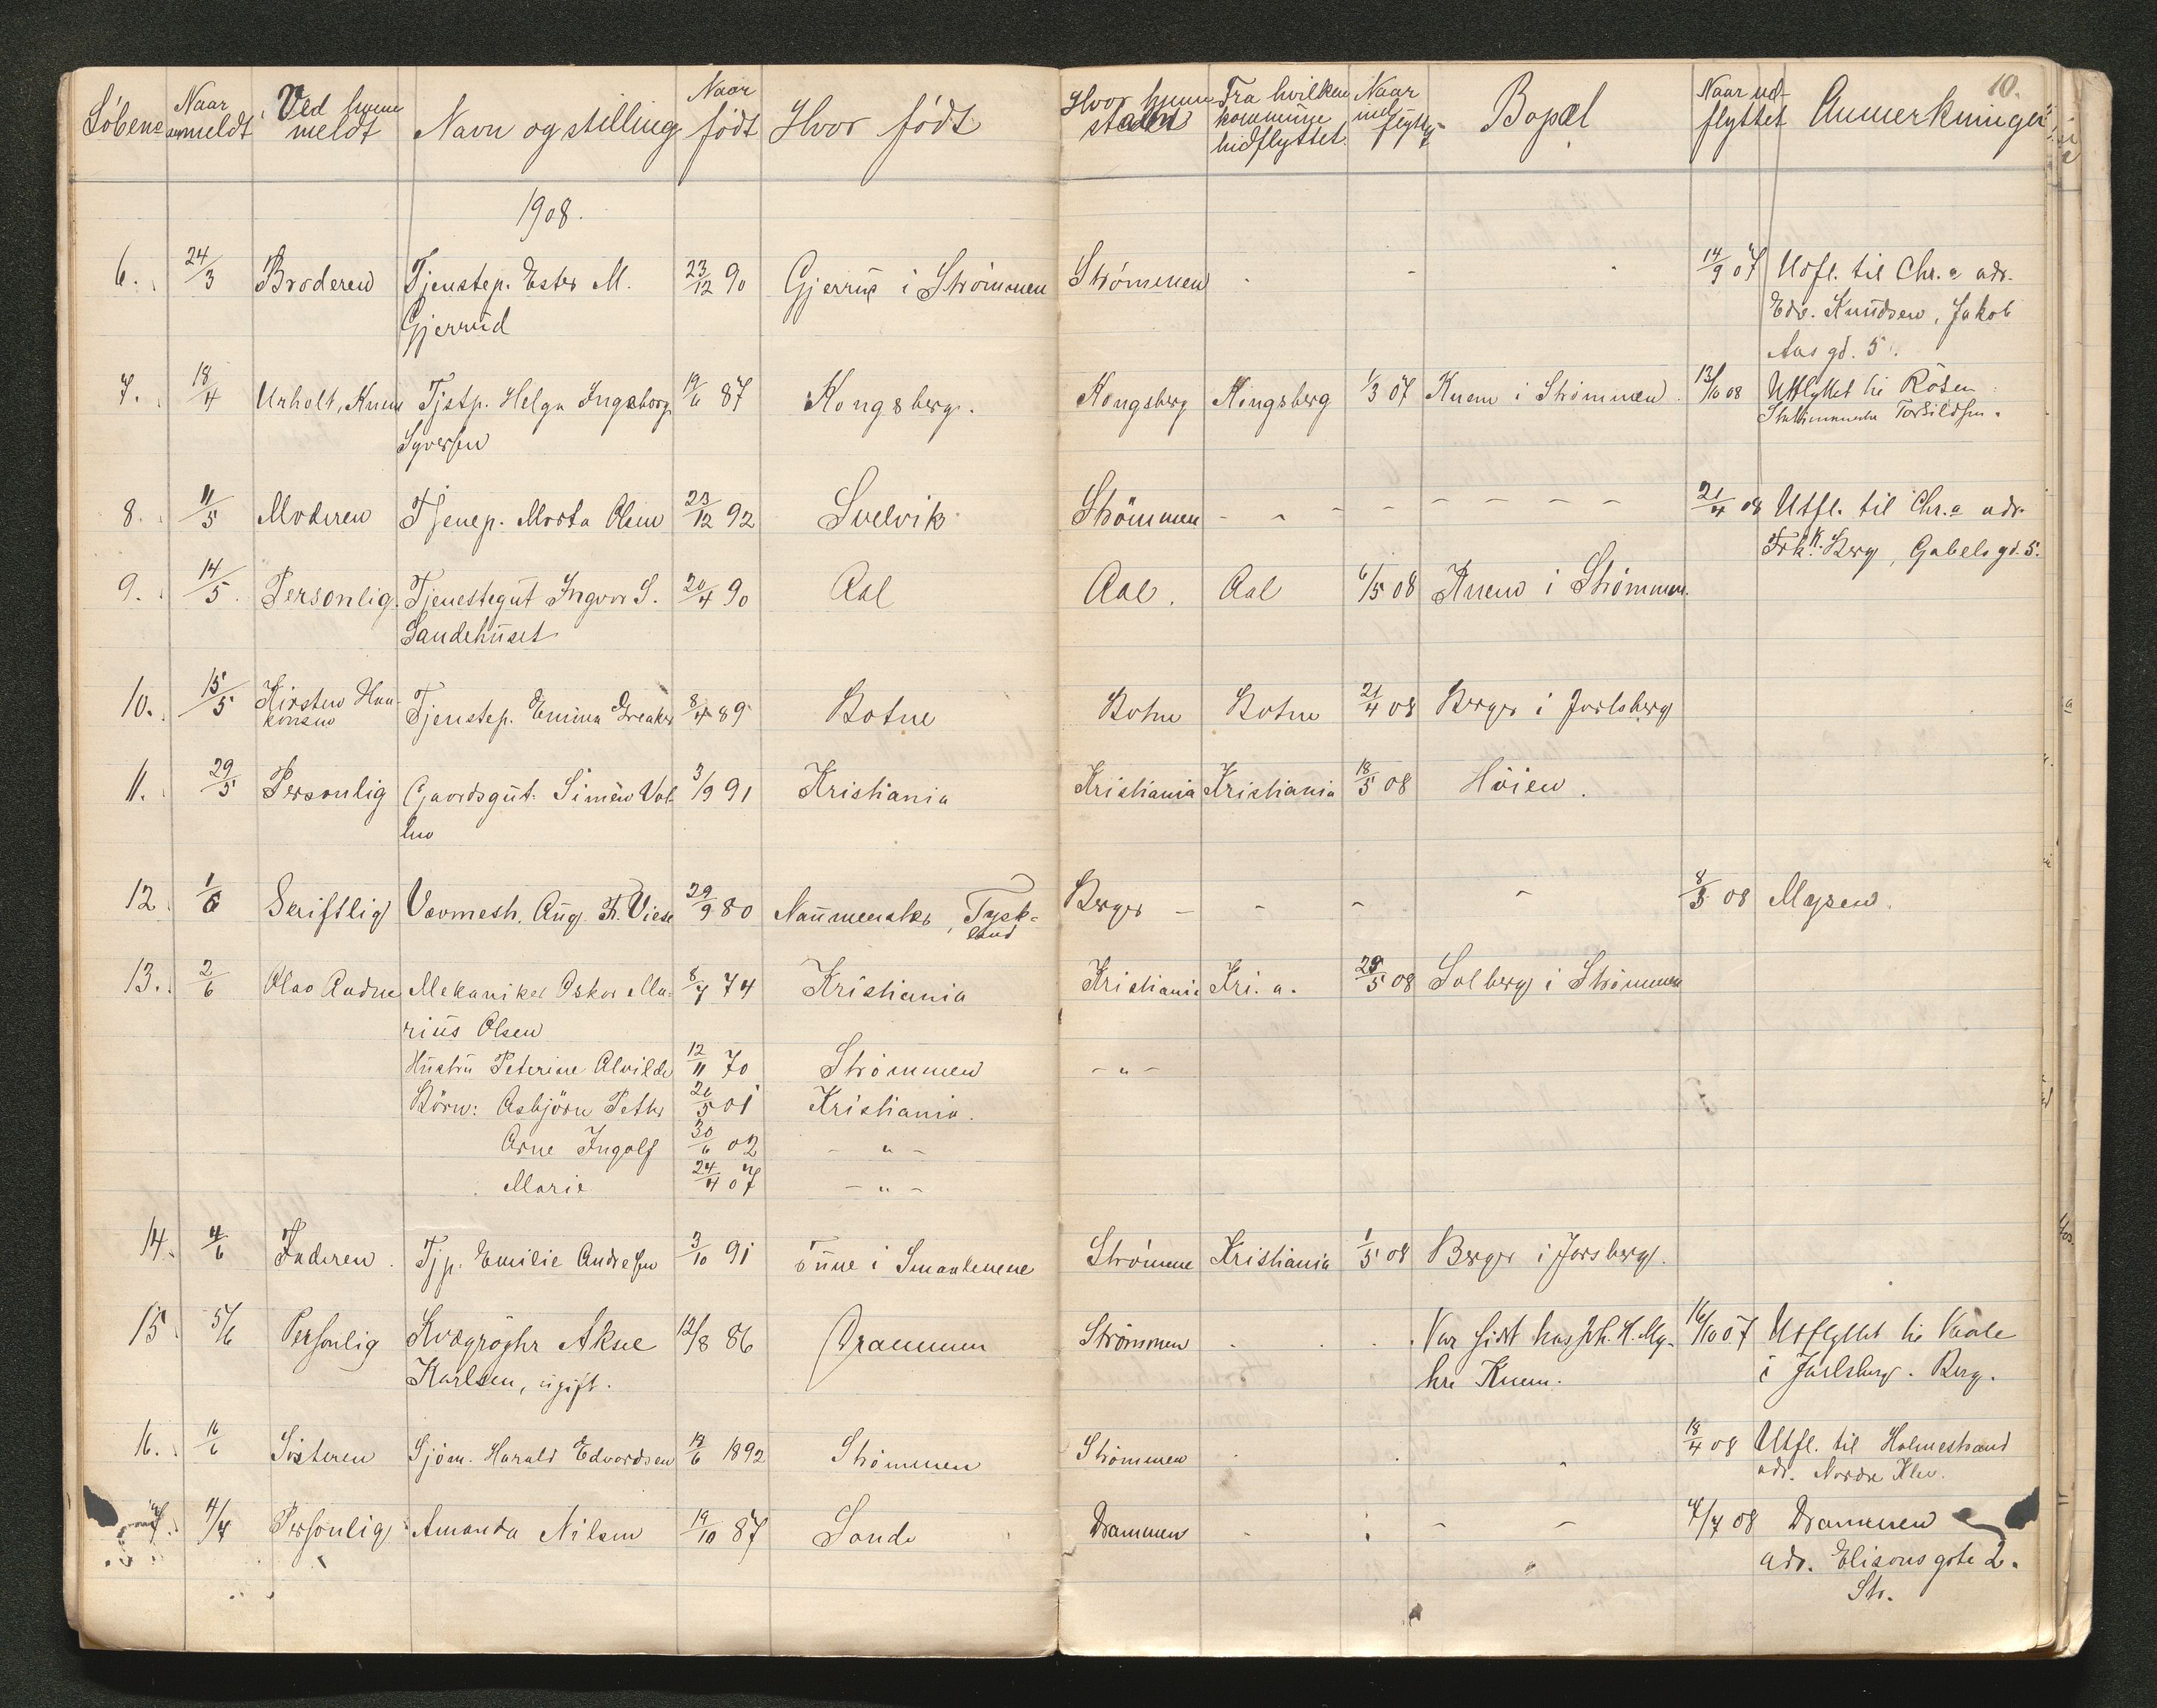 10.
Löbene Naar anmeldt Ved hvem meldt Navn og stilling Naar födt Hvor födt Hvor hjemme Fra hvilken kommune hidflyttet. Naar ind Bopæl Naar ud- flyttet Anmerkninger
1908.
6. 24/3 Broderen Tjenstep. Ester M. 23/12 90 Gjerrud i Strömmen Strömmen - - - 14/9 07 Udfl. til Chr.a adr.
Gjerrud Edv. Knudsen, Jakob
Aas gd. 5.
7. 18/4 Unholt, Knem Tjstp. Helga Ingeborg 19/6 87 Kongsberg. Kongsberg Kongsberg 1/3 07 Knem i Strömmen. 13/10 08 Utflyttet til Röken
Syversen
8. 11/5 Moderen Tjenep. Marta Olsen 23/12 92 Svelvik Strömmen - - - - - - - 21/4 08 Utfl. til Chr.a adr.
Frk. Berg, Gabels gd. 5.
9. 14/5 Personlig. Tjenestegut Ingvar S. 20/4 90 Aal Aal. Aal 6/5 08 Knem i Strömmen.
Sandehuset
10. 15/5 Kirsten Haa- Tjenstep. Emma Greaker 8/4 89 Botne Botne Botne 21/4 08 Berger i Jarlsberg
konsen
11. 29/5 Personlig Gaardsgut. Simen Vol- 3/9 91 Kristiania Kristiania Kristiania 18/5 08 Höien.
12. 1/6 Skriftlig Vævmesth. Aug. Fr. Viese 29/9 80 Naumenster, Tysk- Berger - - - - 8/3 08 Mysen.
land
13. 2/6 Olav Aadne Mekaniker Oskar Ma- 8/7 74 Kristiania Kristiania Kri.a. 29/5 08 Solberg i Strömmen
rius Olsen
Hustru Peterine Alvilde 12/11 70 Strömmen - " -
Börn: Asbjörn Petter 20/5 01 Kristiania.
Arne Ingolf 30/6 02 - " -
Marie 24/4 07 - " -
14. 4/6 Faderen. Tjp. Emilie Andresen 3/10 91 i Smaalenene Strömme Kristiania 1/5 08 Berger i Jarsberg.
15. 5/6 Personlig Kvægrögter Aksel 12/8 86 Drammen Strömmen - - - Var sidst hos Joh. H. My- 16/10 07 Utflyttet til Vaale
Karlsen, ugift. hre Knem. i Jarlsberg. Berg.
16. 16/6 Sösteren Sjöm. Harald Edvardsen 19/6 1892 Strömmen Strömmen - - - 18/4 08 Utfl. til Holmestrand
adr. Nordre
17. 4/7 Personlig Amanda Nilsen 19/10 87 Sande Drammen - - - - 4/7 08 Drammen
adr. Elisons gate 2.
Str.